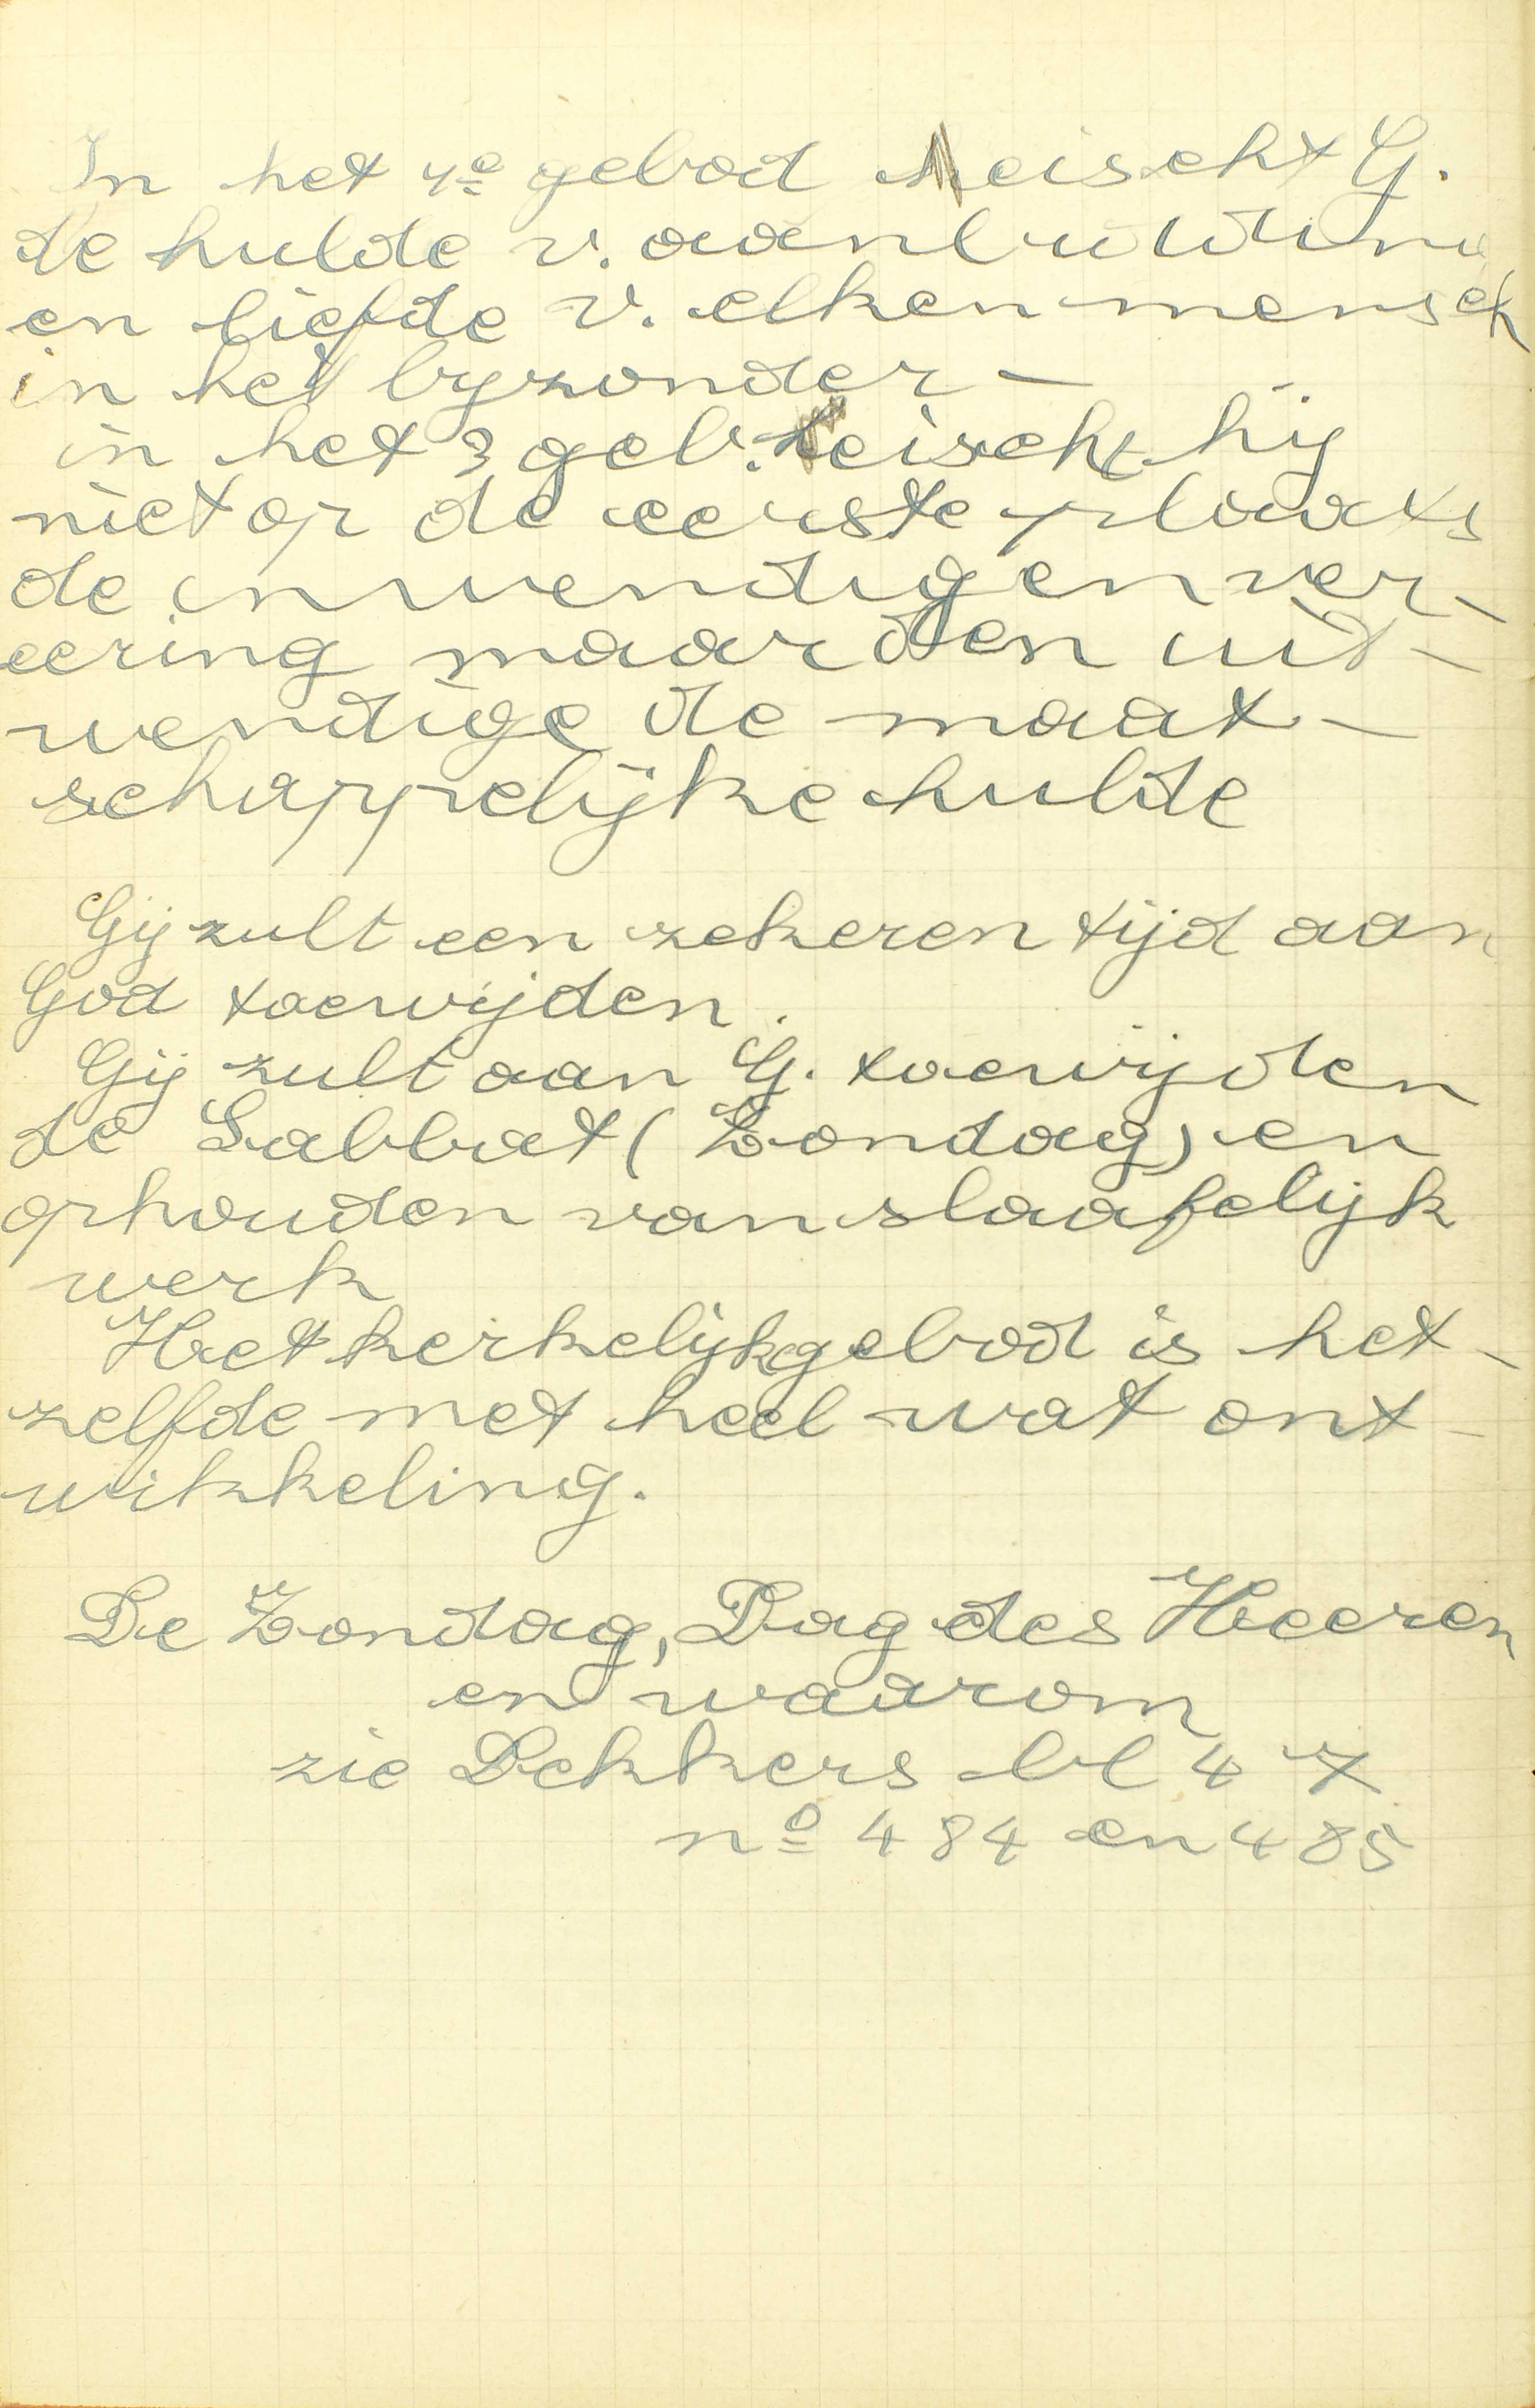 In het 4e gebod eischt G.
de hulde v. aanbidding
en liefde v. elken mensch
in het byzonder –
in het 3 geb. eischt hij
niet op de eerste plaats
de inwendigen ver-
eering maar den uit-
wendige de maat-
schappelijke hulde
Gij zult een zekeren tijd aan
God toewijden.
Gij zult aan G. toewijden
de Sabbat (Zondag) en
ophouden van slaafelijk
werk
Het kerkelijk gebod is het-
zelfde met heel wat ont-
wikkeling.
De Zondag, Dag des Heeren
en waarom
zie Dekkers bl 47
no 484 en 485